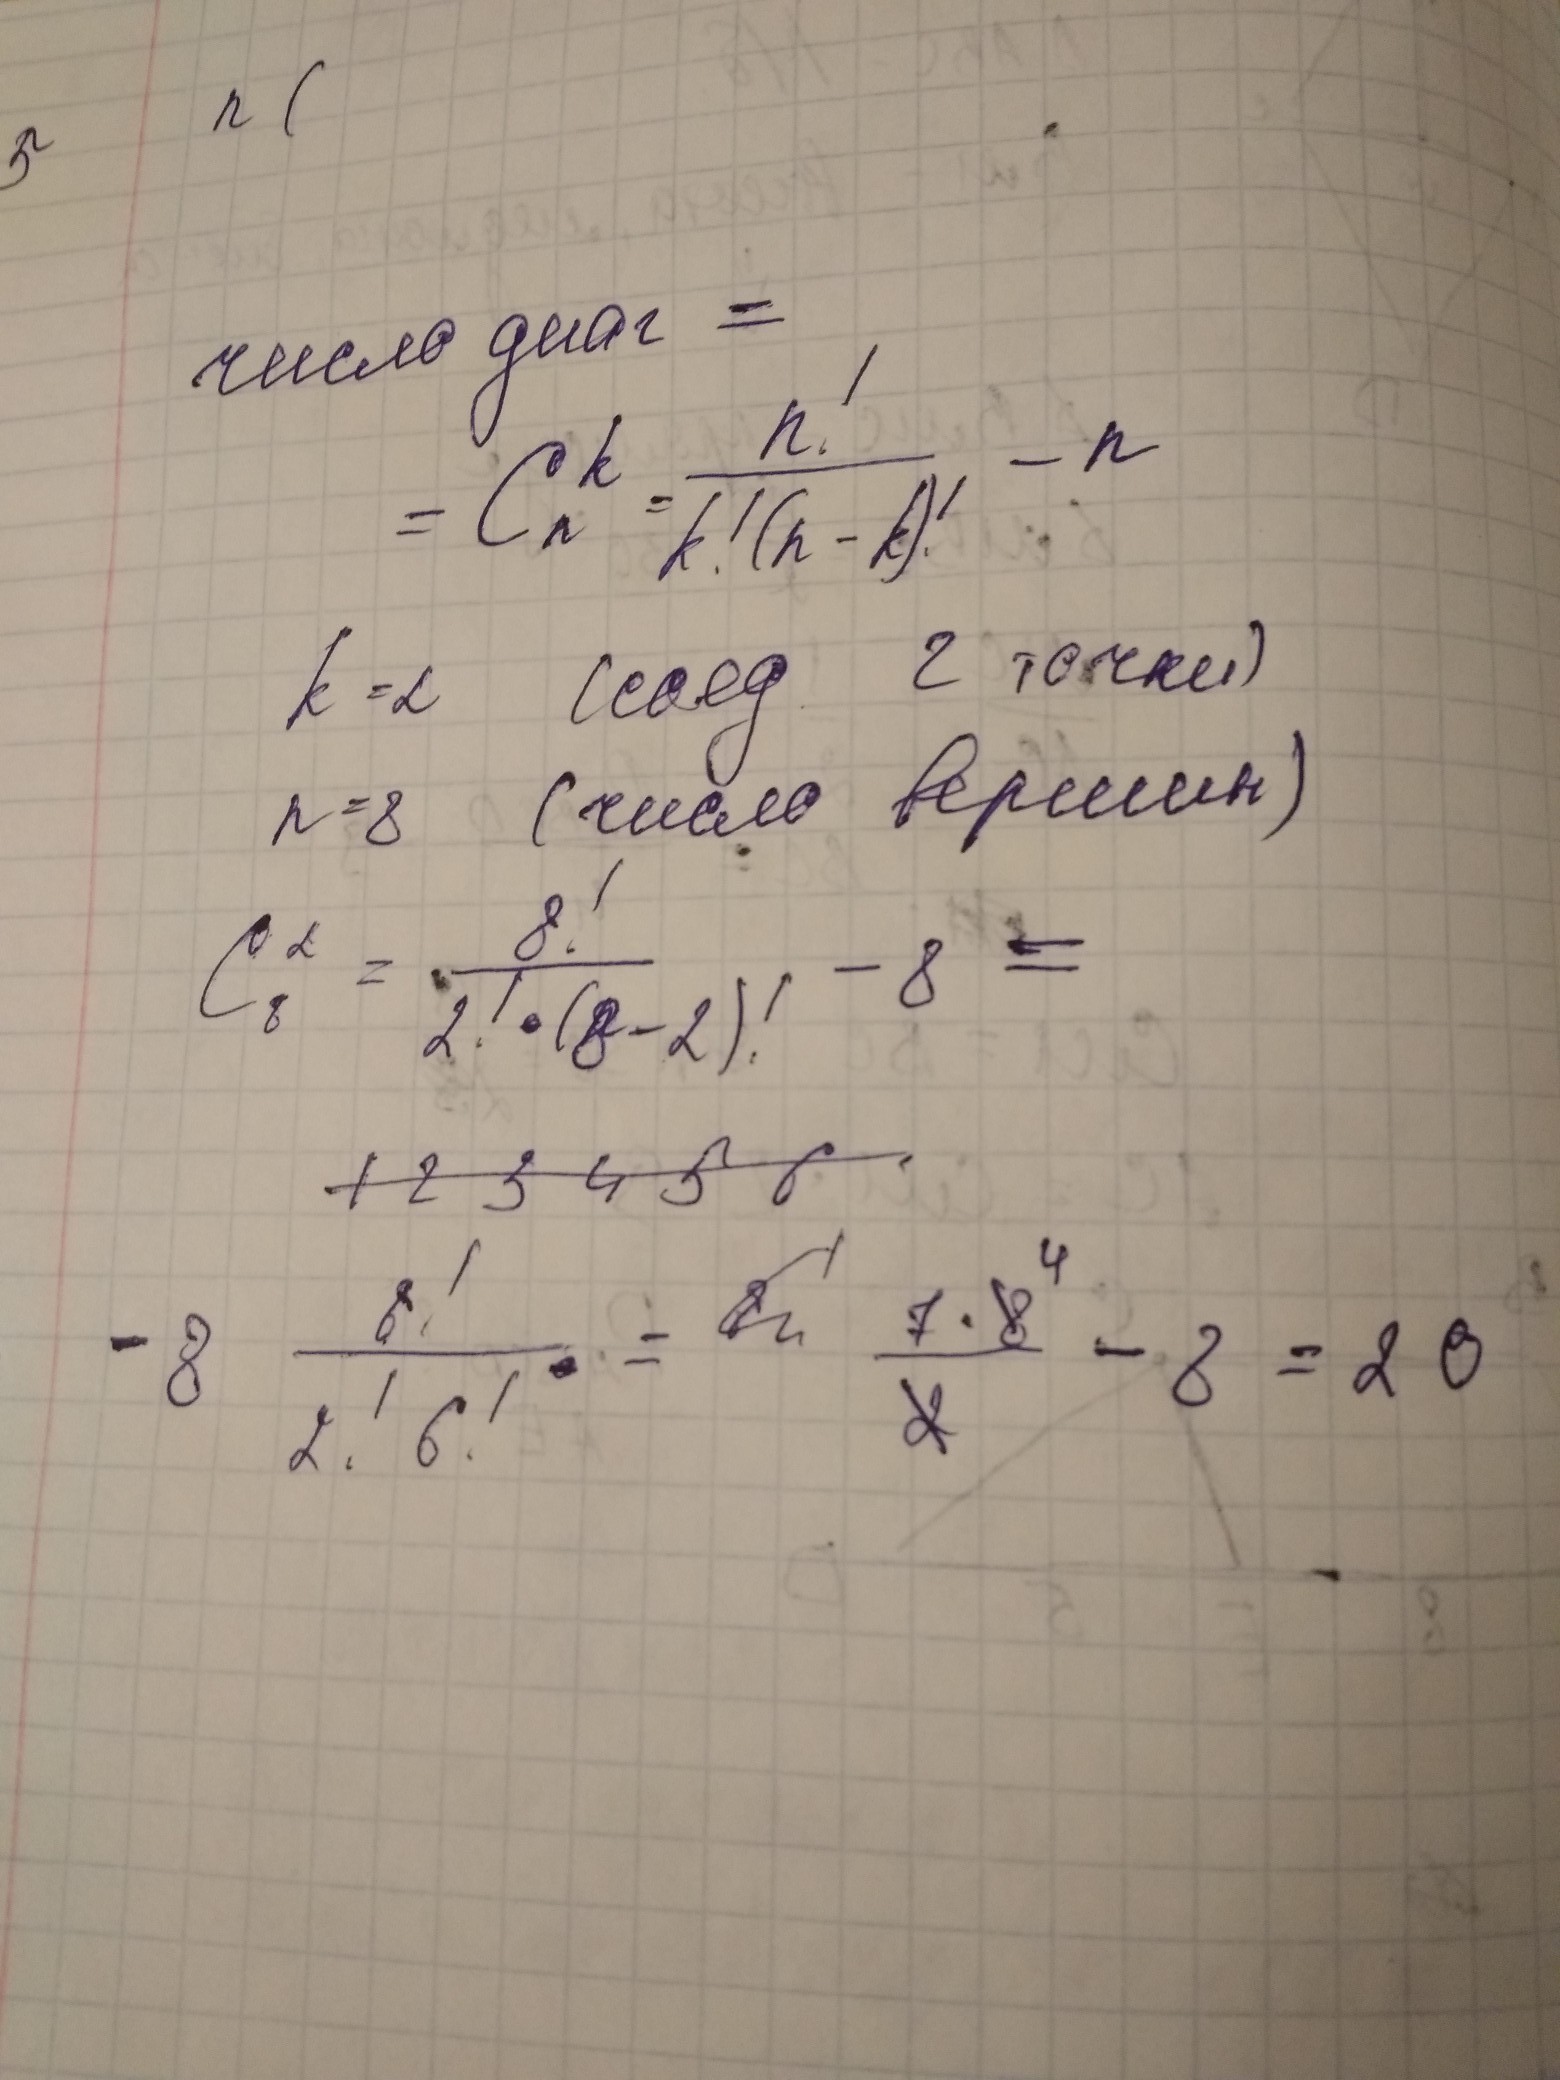 n (
5
число диаг =
= C_n^k = \frac{n!}{k!(n-k)!} - n
k = 2 (соед 2 точки)
n = 8 (число вершин)
C_8^2 = \frac{8!}{2! \cdot (8-2)!} - 8 =
1 2 3 4 5 6
-8 \frac{8!}{2! 6!} = \frac{7 \cdot 8^4}{2} - 8 = 20